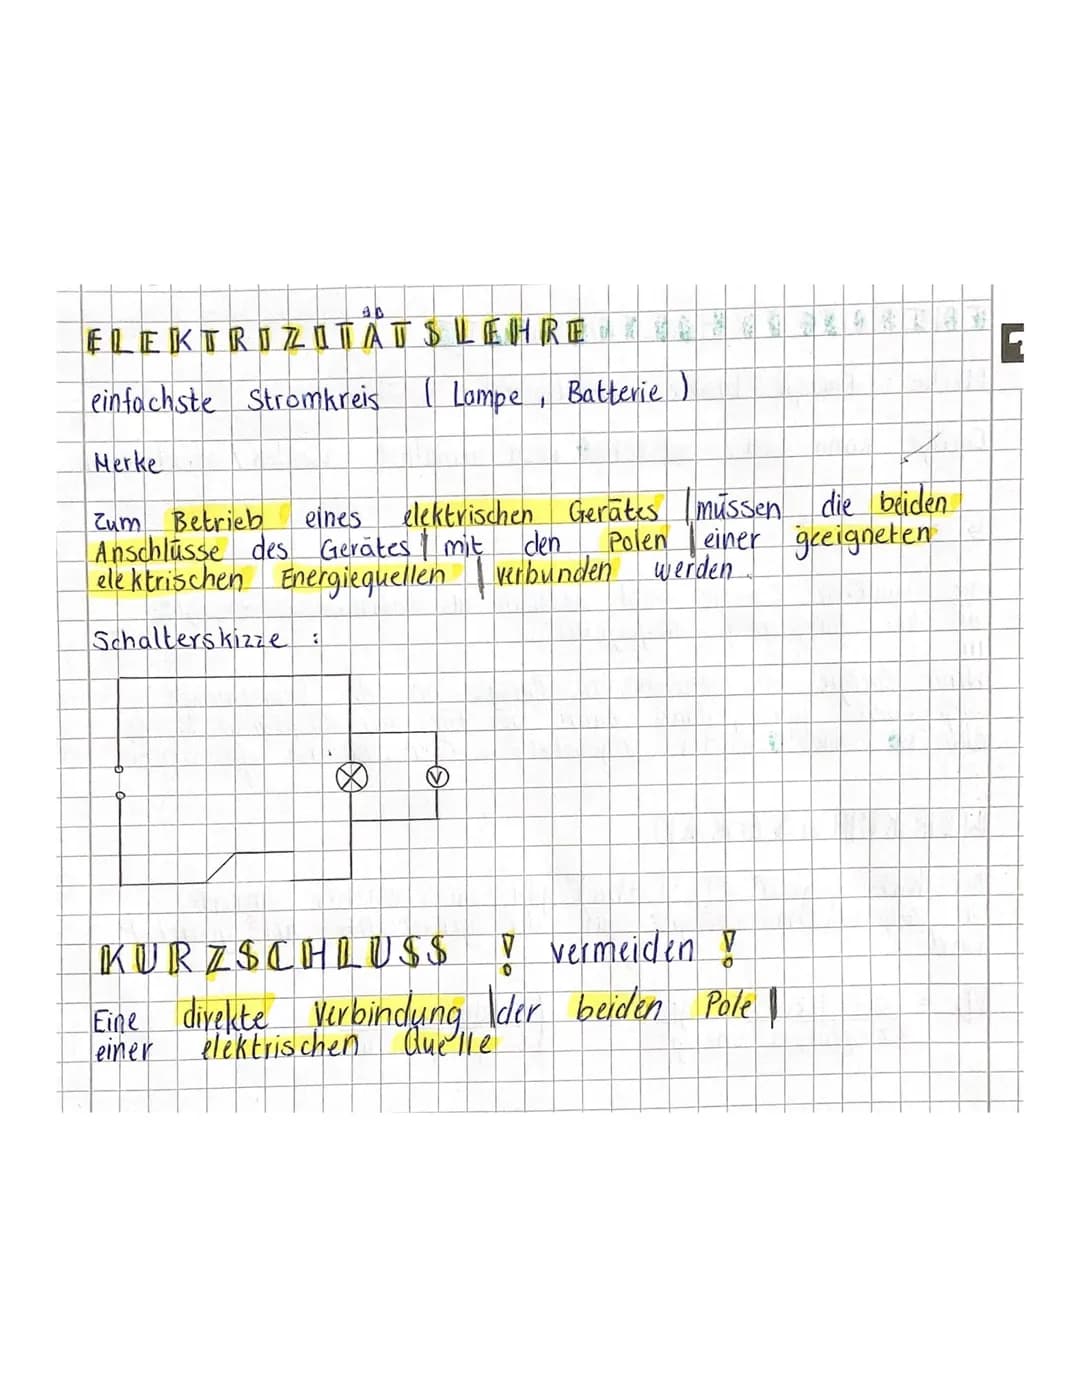 ELEKTRIZITÄTSLEHRE
einfachste Stromkreis ( Lampe , Batterie )
Merke
Zum Betrieb eines elektrischen Gerätes | müssen die beiden
Anschlüsse des Gerätes | mit den Polen | einer geeigneten
elektrischen Energiequellen | verbunden werden .
Schalterskizze :
V
KURZSCHLUSS ! vermeiden !
Eine direkte Verbindung | der beiden Pole |
einer elektrischen Quelle